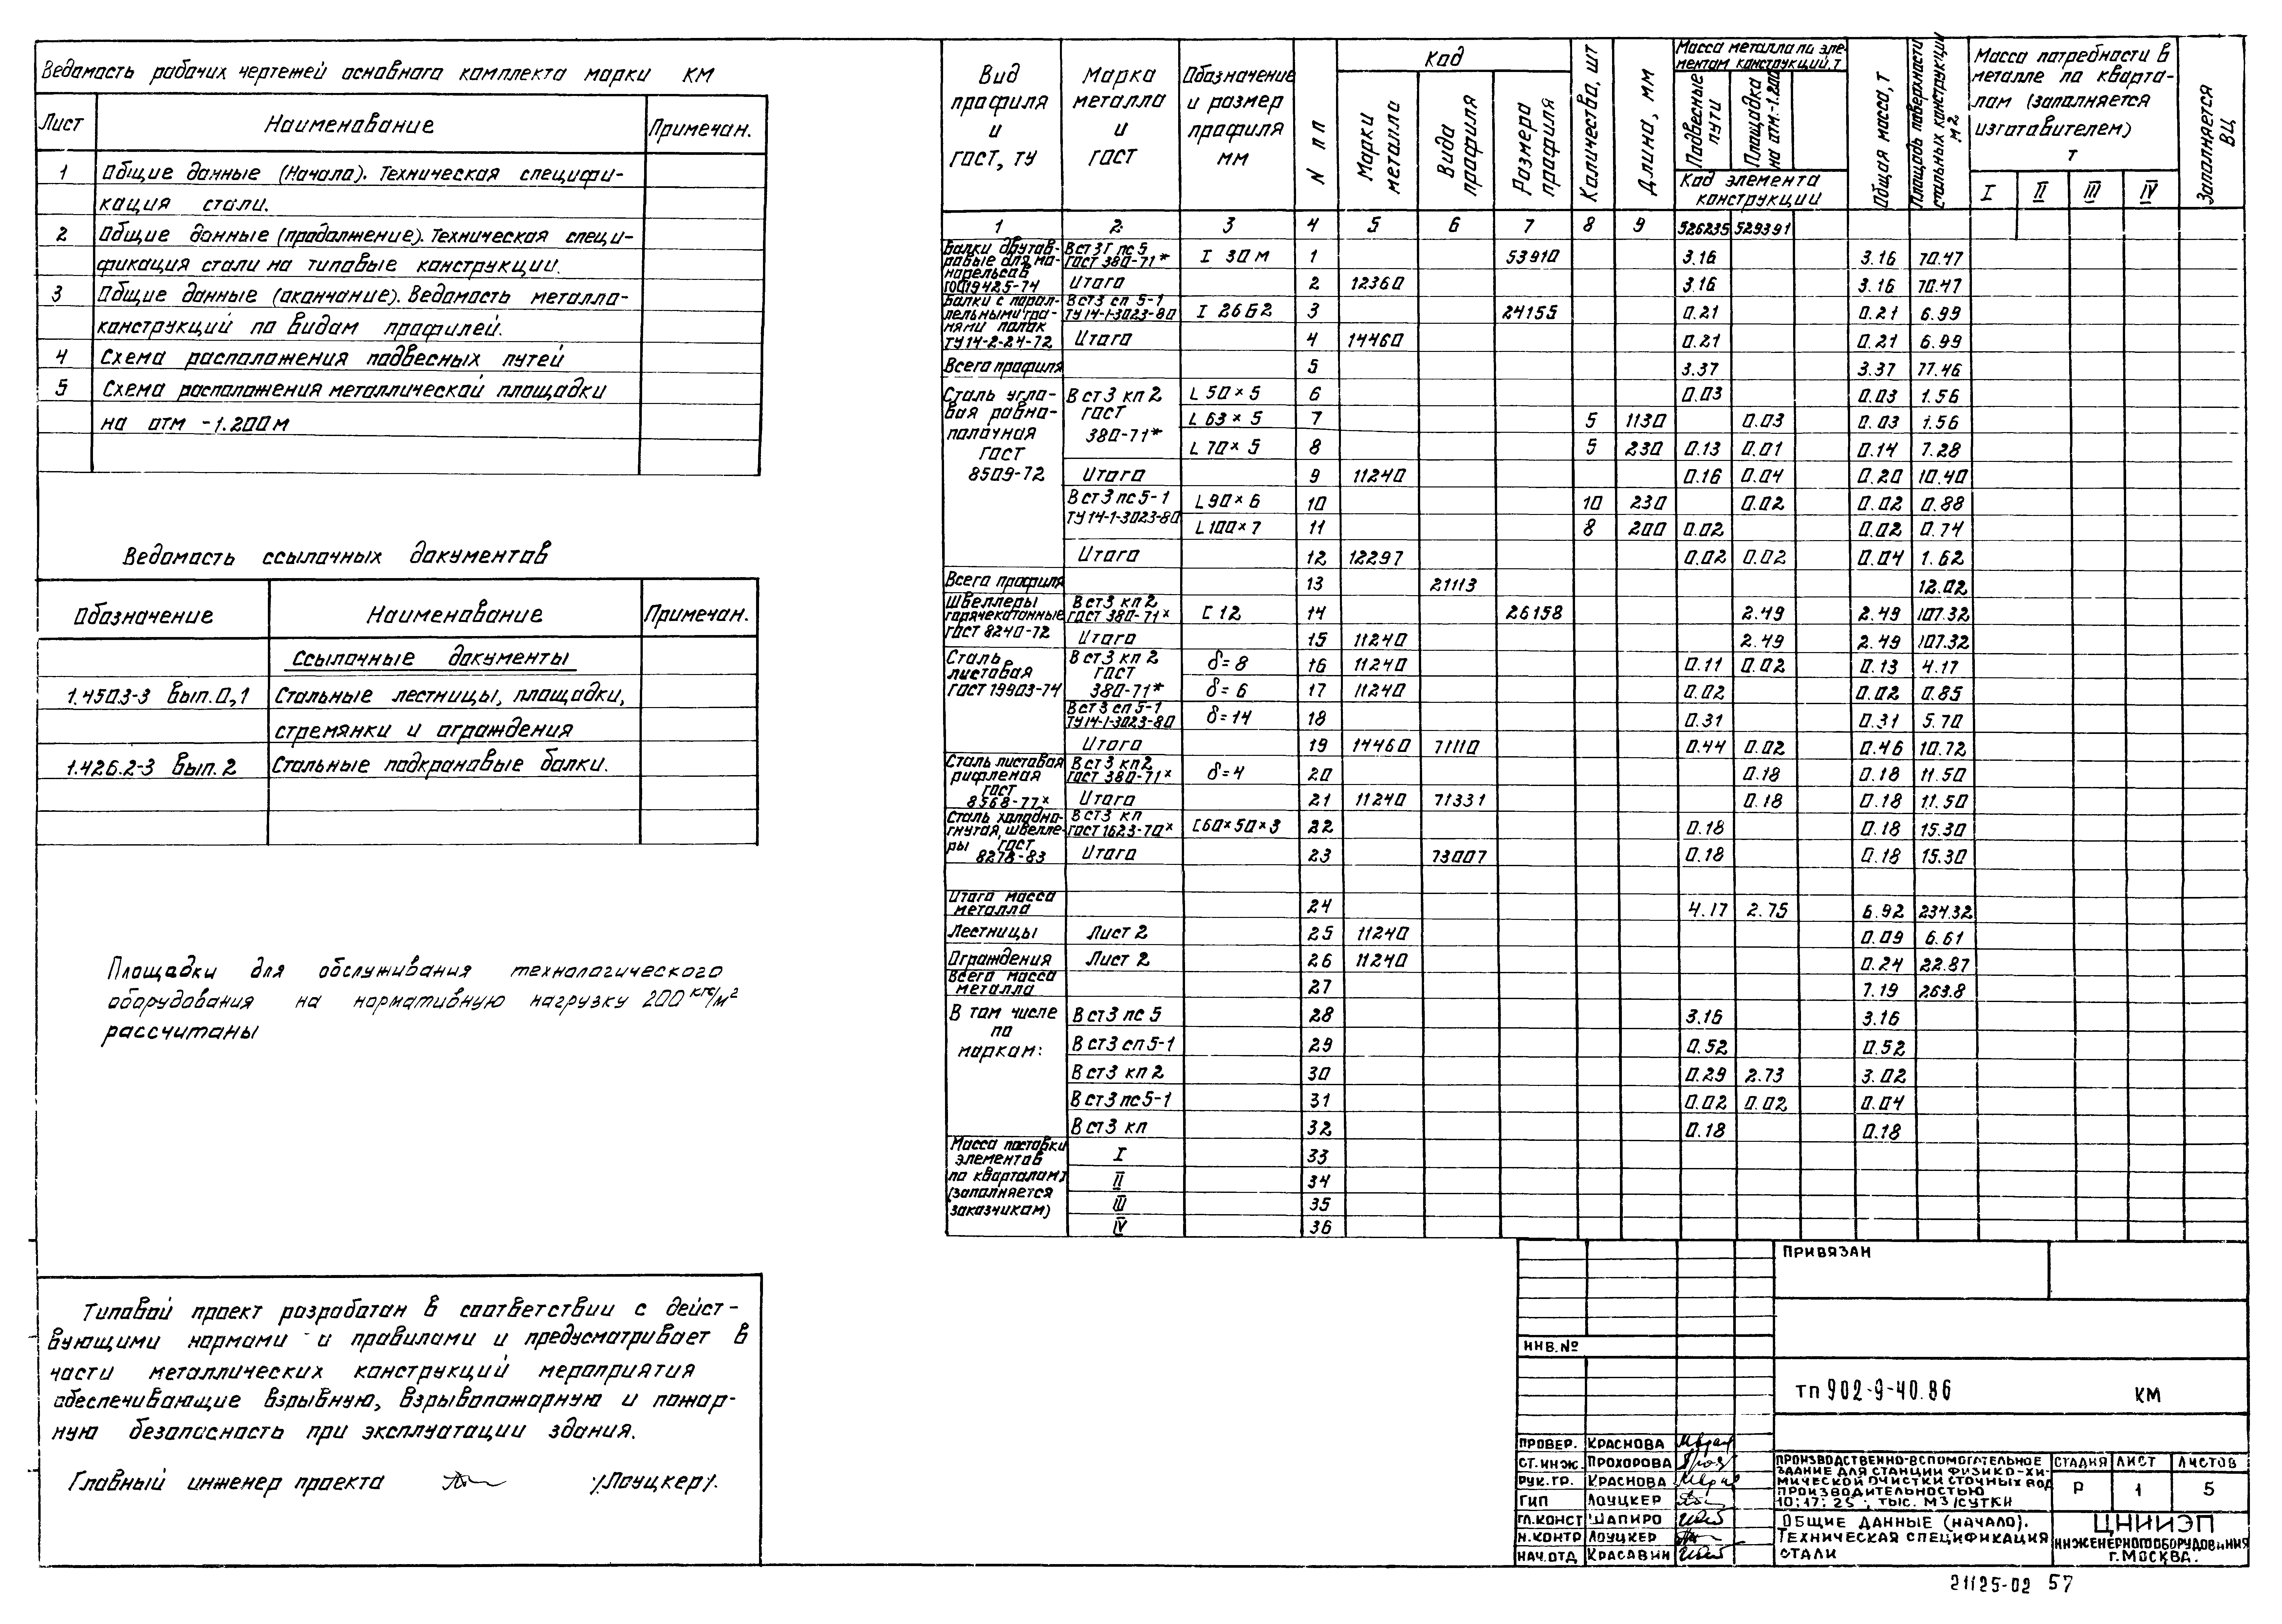 Ведомость рабочих чертежей основного комплекта марки КМ
Лист Наименование Примечан.
1 Общие данные (Начало). Техническая специфи-
кация стали.
2 Общие данные (продолжение). Техническая специ-
фикация стали на типовые конструкции.
3 Общие данные (окончание). Ведомость металло-
конструкций по видам профилей.
4 Схема расположения подвесных путей
5 Схема расположения металлической площадки
на отм -1.200м
Ведомость ссылочных документов
Обозначение Наименование Примечан.
Ссылочные документы
1.450.3-3 вып.0,1 Стальные лестницы, площадки,
стремянки и ограждения
1.426.2-3 вып.2 Стальные подкрановые балки.
Площадки для обслуживания технологического
оборудования на нормативную нагрузку 200 кгс/м2
рассчитаны
Типовой проект разработан в соответствии с дейст-
вующими нормами и правилами и предусматривает в
части металлических конструкций мероприятия
обеспечивающие взрывную, взрывопожарную и пожар-
ную безопасность при эксплуатации здания.
Главный инженер проекта /Лоуцкер/.
Вид профиля и ГОСТ, ТУ
Марка металла и ГОСТ
Обозначение и размер профиля мм
N пп
Код
Марки металла
Вида профиля
Размера профиля
Количество, шт
Длина, мм
Масса металла по эле-
ментам конструкций, т
Подвесные пути
Площадка на отм.-1.200
Код элемента
конструкции
Общая масса, т
Площадь поверхности стальных конструкций м2
Масса потребности в
металле по кварта-
лам (заполняется
изготовителем)
т
I II III IV
Заполняется ВЦ
1 2 3 4 5 6 7 8 9 526235 529391
Балки двутав-
ровые для мо-
норельсов
ГОСТ 19425-74
Вст3Гпс5 ГОСТ 380-71* I 30м 1 53910 3.16 3.16 70.47
Итого 2 12360 3.16 3.16 70.47
Балки с парал-
лельными гра-
нями полок
ТУ14-2-24-72
Вст3 сп 5-1 ТУ14-1-3023-80 I 26Б2 3 24155 0.21 0.21 6.99
Итого 4 14460 0.21 0.21 6.99
Всего профиля 5 3.37 3.37 77.46
Сталь угло-
вая равно-
полочная
ГОСТ
8509-72
Вст3 кп 2 ГОСТ 380-71*
L 50×5 6 0.03 0.03 1.56
L 63×5 7 5 1130 0.03 0.03 1.56
L 70×5 8 5 230 0.13 0.01 0.14 7.28
Итого 9 11240 0.16 0.04 0.20 10.40
Вст3 пс 5-1 ТУ14-1-3023-80
L 90×6 10 10 230 0.02 0.02 0.88
L 100×7 11 8 200 0.02 0.02 0.74
Итого 12 12297 0.02 0.02 0.04 1.62
Всего профиля 13 21113 12.02
Швеллеры
горячекатанные
ГОСТ 8240-72
Вст3 кп2 ГОСТ 380-71* С 12 14 26158 2.49 2.49 107.32
Итого 15 11240 2.49 2.49 107.32
Сталь
листовая
ГОСТ 19903-74
Вст3 кп 2 ГОСТ 380-71*
δ=8 16 11240 0.11 0.02 0.13 4.17
δ=6 17 11240 0.02 0.02 0.85
Вст3 сп5-1 ТУ14-1-3023-80 δ=14 18 0.31 0.31 5.70
Итого 19 14460 71110 0.44 0.02 0.46 10.72
Сталь листовая
рифленая
ГОСТ
8568-77*
Вст3 кп2 ГОСТ 380-71* δ=4 20 0.18 0.18 11.50
Итого 21 11240 71331 0.18 0.18 11.50
Сталь холодно-
гнутая, швелле-
ры ГОСТ
8278-83
Вст3 кп ГОСТ 1623-70* С60×50×3 22 0.18 0.18 15.30
Итого 23 73007 0.18 0.18 15.30
Итого масса
металла 24 4.17 2.75 6.92 234.32
Лестницы Лист 2 25 11240 0.09 6.61
Ограждения Лист 2 26 11240 0.24 22.87
Всего масса
металла 27 7.19 263.8
В том числе
по
маркам:
Вст3 пс 5 28 3.16 3.16
Вст3 сп 5-1 29 0.52 0.52
Вст3 кп 2 30 0.29 2.73 3.02
Вст3 пс 5-1 31 0.02 0.02 0.04
Вст3 кп 32 0.18 0.18
Масса поставки
элементов
по кварталам, т
(заполняется
заказчиком)
I 33
II 34
III 35
IV 36
ПРИВЯЗАН
ИНВ.№
тп 902-9-40.86 КМ
ПРОВЕР. КРАСНОВА
СТ.ИНЖ. ПРОХОРОВА
РУК.ГР. КРАСНОВА
ГИП ЛОУЦКЕР
ГЛ.КОНСТ ШАПИРО
Н.КОНТР ЛОУЦКЕР
НАЧ.ОТД КРАСАВИН
ПРОИЗВОДСТВЕННО-ВСПОМОГАТЕЛЬНОЕ
ЗДАНИЕ ДЛЯ СТАНЦИИ ФИЗИКО-ХИ-
МИЧЕСКОЙ ОЧИСТКИ СТОЧНЫХ ВОД
ПРОИЗВОДИТЕЛЬНОСТЬЮ
10; 17; 25; ТЫС. М3/СУТКИ
СТАДИЯ ЛИСТ ЛИСТОВ
Р 1 5
ОБЩИЕ ДАННЫЕ (НАЧАЛО).
ТЕХНИЧЕСКАЯ СПЕЦИФИКАЦИЯ
СТАЛИ
ЦНИИЭП
ИНЖЕНЕРНОГО ОБОРУДОВАНИЯ
Г.МОСКВА.
21125-02 57